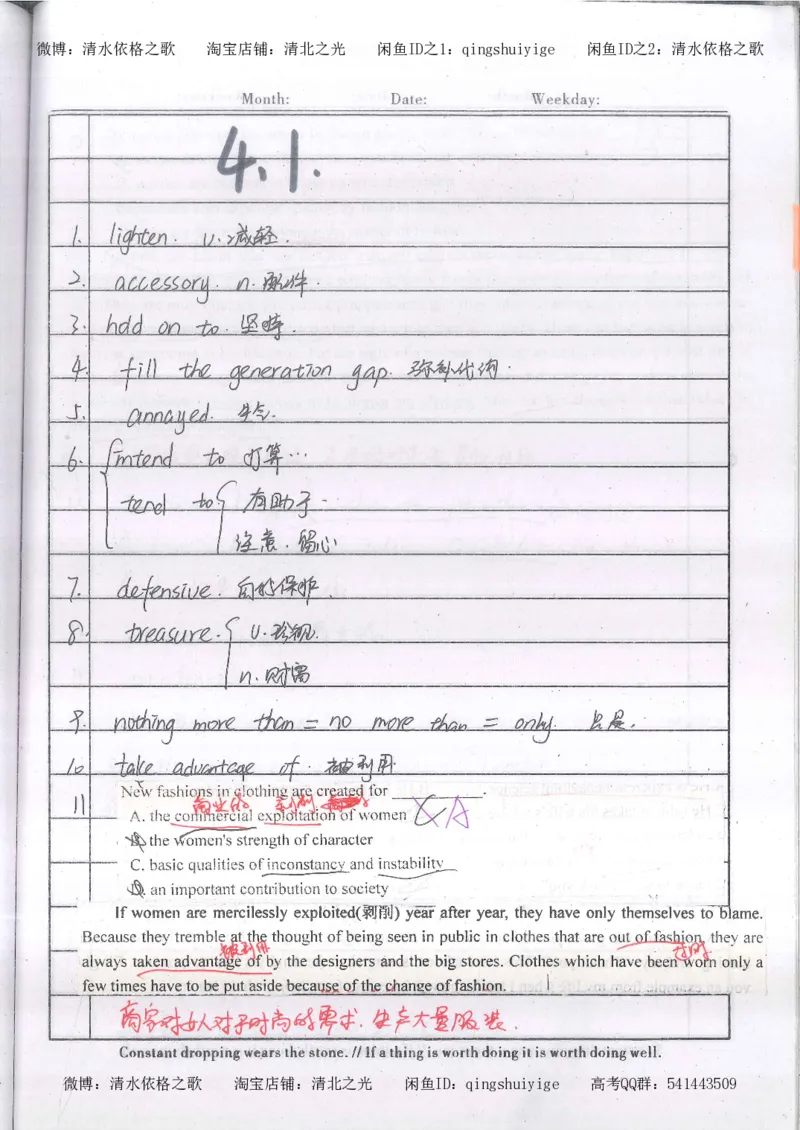 微博：清水依格之歌 淘宝店铺：清北之光 闲鱼ID之1：qingshuiyige 闲鱼ID之2：清水依格之歌
Month: Date: Weekday:
4.1.
1. lighten. v. 减轻.
2. accessory. n. 配件.
3. hdd on to. 坚持.
4. fill the generation gap. 弥补代沟.
5. annayed. 生气.
6. intend to 打算…
tend to 有助于
注意. 留心
7. defensive. 自我保护
8. treasure. v. 珍视.
n. 财富
9. nothing more than = no more than = only. 只是.
10 take advantage of. 被利用
11 New fashions in clothing are created for
商业的 剥削
A. the commercial exploitation of women A
B. the women's strength of character
C. basic qualities of inconstancy and instability
D. an important contribution to society
If women are mercilessly exploited(剥削) year after year, they have only themselves to blame.
Because they tremble at the thought of being seen in public in clothes that are out of fashion, they are
被利用 过时
always taken advantage of by the designers and the big stores. Clothes which have been worn only a
few times have to be put aside because of the change of fashion.
商家对女人对于时尚的要求. 生产大量服装.
Constant dropping wears the stone. // If a thing is worth doing it is worth doing well.
微博：清水依格之歌 淘宝店铺：清北之光 闲鱼ID：qingshuiyige 高考QQ群：541443509